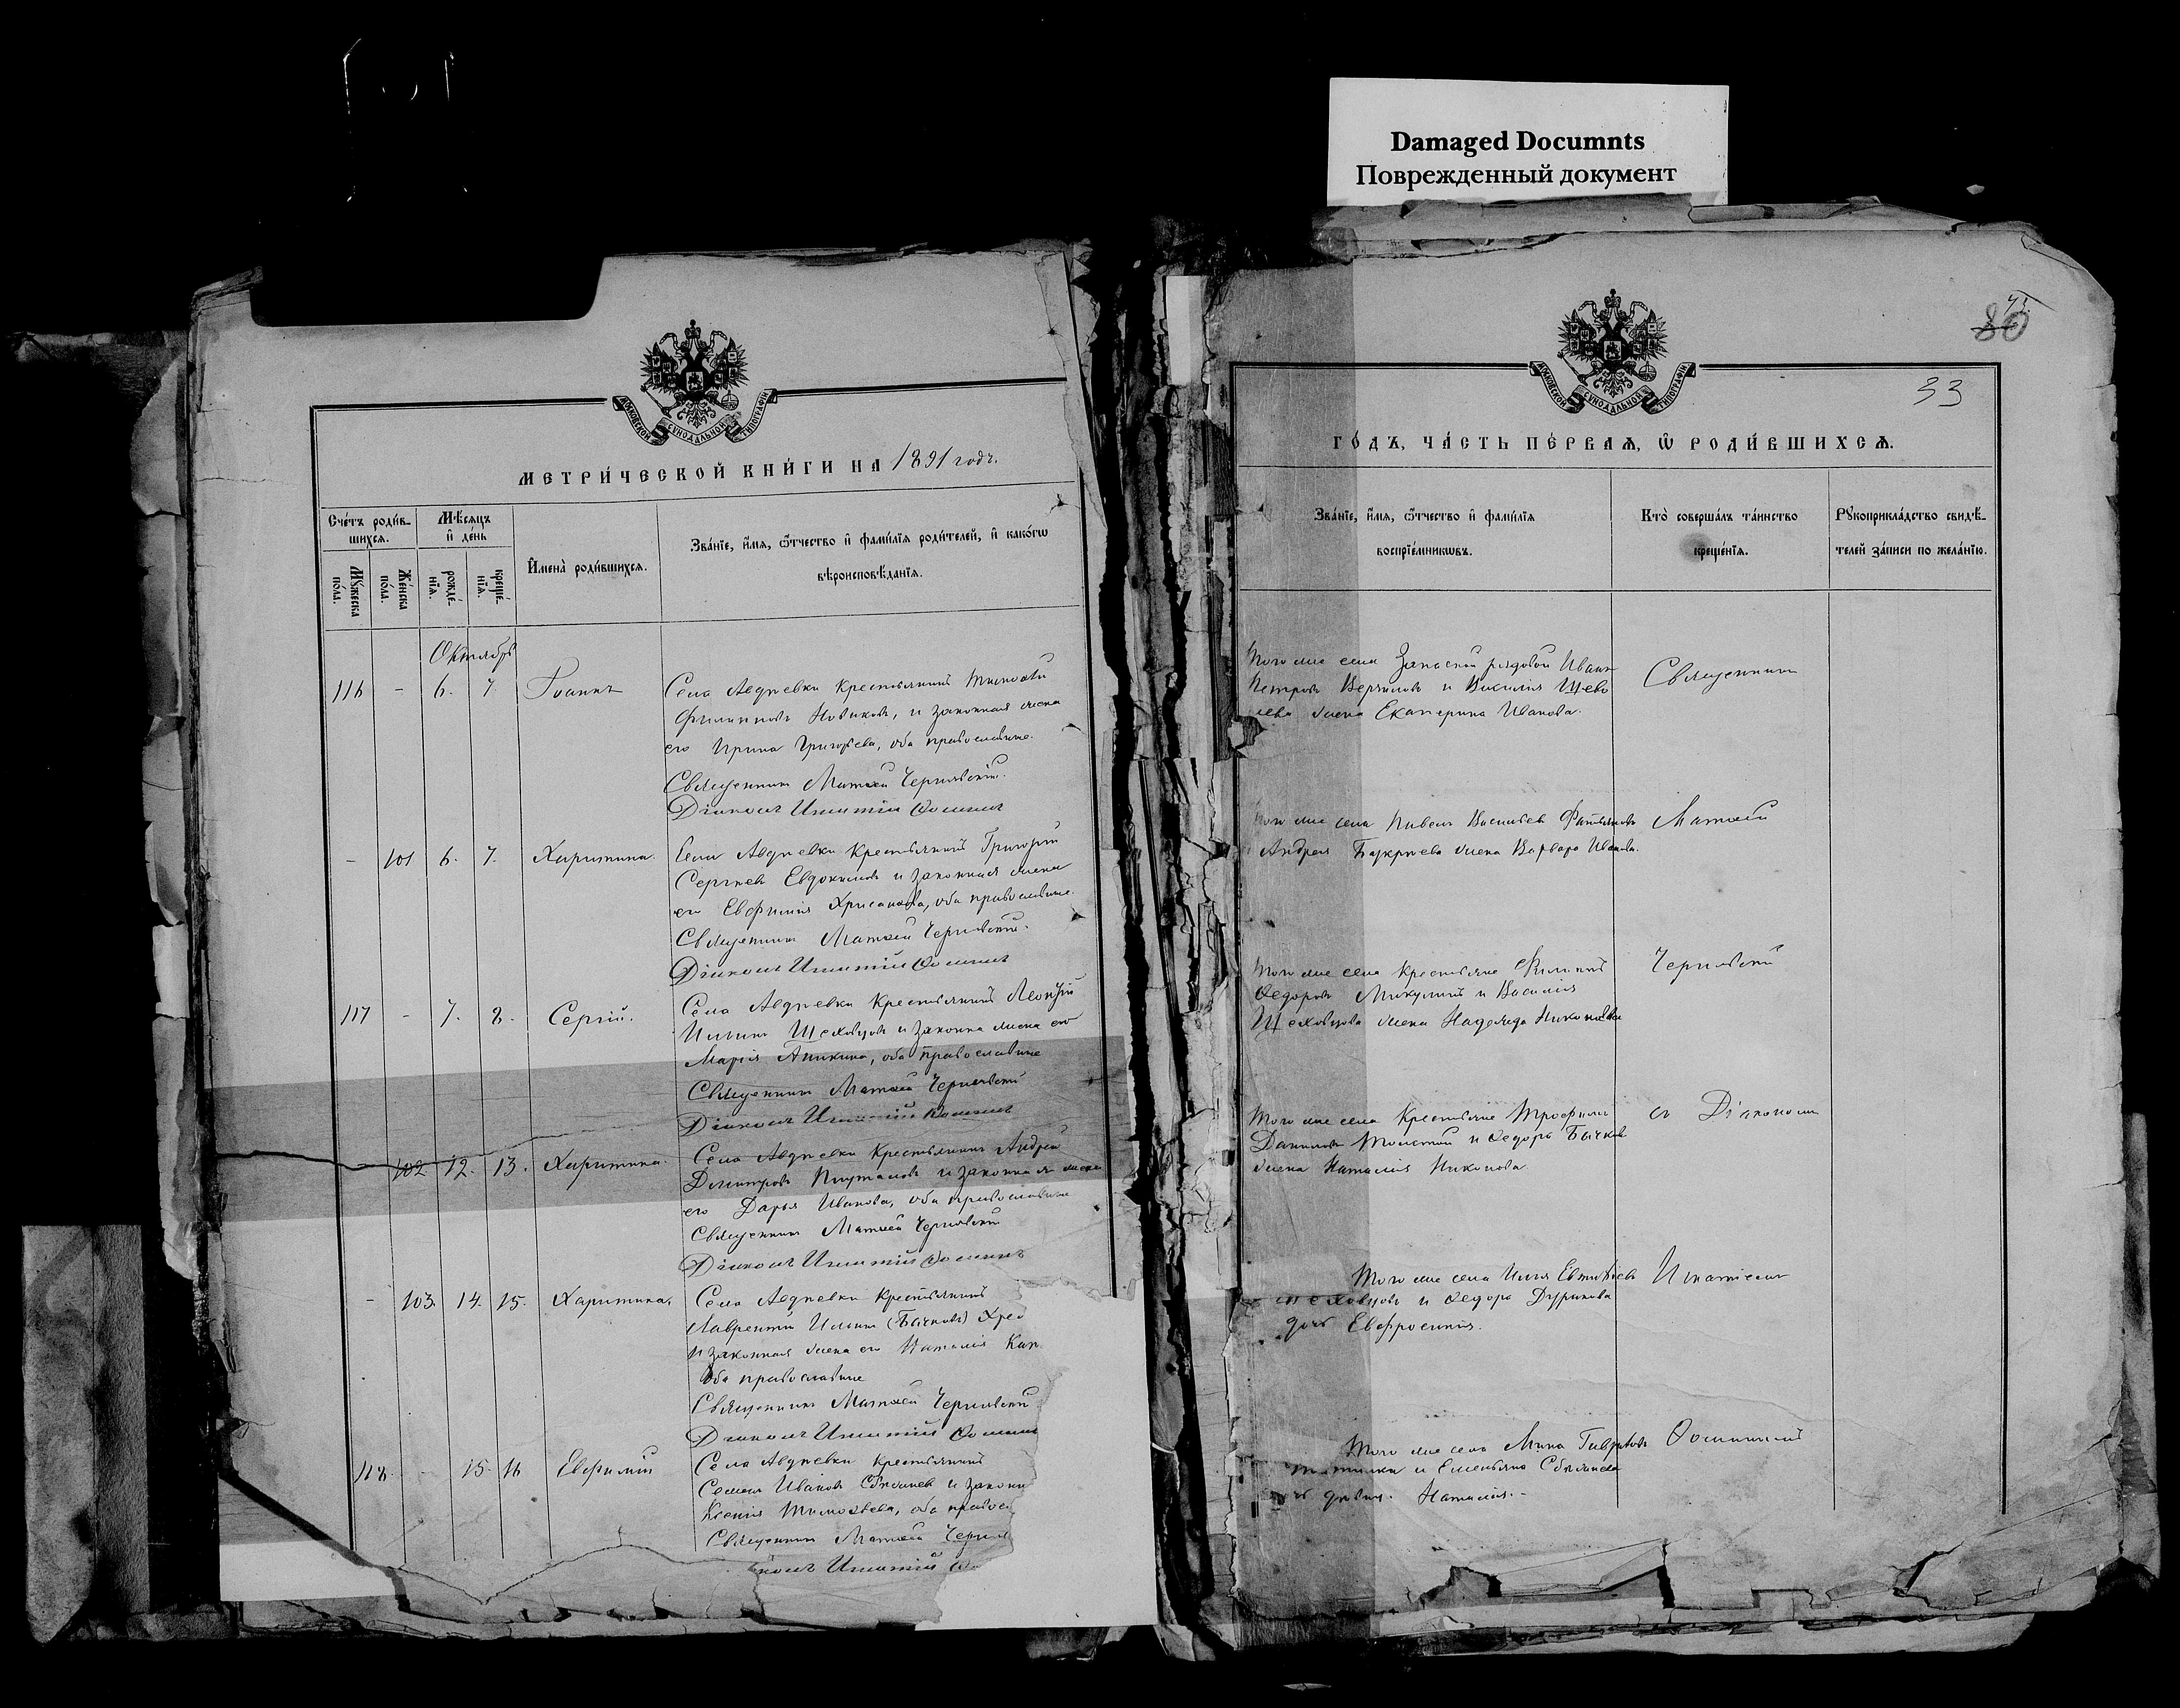 Damaged Documnts
Поврежденный документ
МОСКОВСКОЙ СѴНОДАЛЬНОЙ ТИПОГРАФІИ
МЕТРИ́ЧЕСКОЙ КНИ́ГИ НА 1891 годъ.
Сче́тъ роди́в-
шихсѧ.
Мꙋ́жеска
по́ла.
Же́нска
по́ла.
Мѣ́сѧцъ
и҆ де́нь
рожде́-
нїѧ.
креще́-
нїѧ.
И҆мена̀ роди́вшихсѧ.
Зва́нїе, и҆́мѧ, ѻ҆́тчество и҆ фами́лїѧ роди́телей, и҆ како́гѡ
вѣроисповѣ́данїѧ.
Октябрь
116 - 6. 7. Іоаннъ
Села Авдѣевки крестьянинъ Тимоѳей
Филипповъ Новиковъ, и законная жена
его Ирина Григорьева, оба православные.
Священникъ Матѳей Чернявскій.
Діаконъ Игнатій Ѳоминъ
- 101 6. 7. Харитина.
Села Авдѣевки крестьянинъ Григорій
Сергѣевъ Евдокимовъ и законная жена
его Евфимія Хрисанова, оба православные.
Священникъ Матѳей Чернявскій.
Діаконъ Игнатій Ѳоминъ
117 - 7. 8. Сергій.
Села Авдѣевки крестьянинъ Леонтій
Ильинъ Шеховцовъ и законна жена его
Марія Аникина, оба православные
Священникъ Матѳей Чернявскій
Діаконъ Игнатій Ѳоминъ
- 102 12. 13. Харитина.
Села Авдѣевки крестьянинъ Андрей
Димитровъ и законная жена
его Дарья Иванова, оба православные
Священникъ Матѳей Чернявскій
Діаконъ Игнатій Ѳоминъ
- 103. 14. 15. Харитина.
Села Авдѣевки крестьянинъ
Лаврентій Ильинъ (Бычковъ)
и законная жена его Наталія
Оба православные
Священникъ Матѳей Чернявскій
Діаконъ Игнатій Ѳомин
118. - 15. 16 Евфимій
Села Авдѣевки крестьянинъ
Семенъ Ивановъ и законн
Ксенія Тимоѳеева, оба правосл
Священникъ Матѳей Черняв
конъ Игнатій Ѳо
80
33
МОСКОВСКОЙ СѴНОДАЛЬНОЙ ТИПОГРАФІИ
ГО́ДЪ, ЧА́СТЬ ПЕ́РВАѦ, Ѽ РОДИ́ВШИХСѦ.
Зва́нїе, и҆́мѧ, ѻ҆́тчество и҆ фами́лїѧ
воспрїе́мникѡвъ.
Кто̀ соверша́лъ та́инство
креще́нїѧ.
Рꙋкоприкла́дство свидѣ́-
телей за́писи по жела́нїю.
Того же села Запасной рядовой Иванъ
Петровъ и Василія
жена Екатерина Иванова.
Священникъ
Того же села Павелъ Васильевъ
Андрея жена Варвара Иванова.
Матѳей
Того же села крестьяне Филиппъ
Ѳедоровъ Микулинъ и Василія
Шеховцова жена Надежда Никонова
Чернявскій
Того же села крестьяне Трофимъ
Даниловъ Толстой и Ѳедора Бычкова
жена Наталія Никонова
съ Діакономъ
Того же села Илья Евтихіевъ
Шеховцовъ и Ѳедора Дурникова
дочь Евфросинія.
Игнатіемъ
Того же села Мина Гавриловъ
и Емельяна
дочь дѣвица Наталія.-
Ѳоминымъ